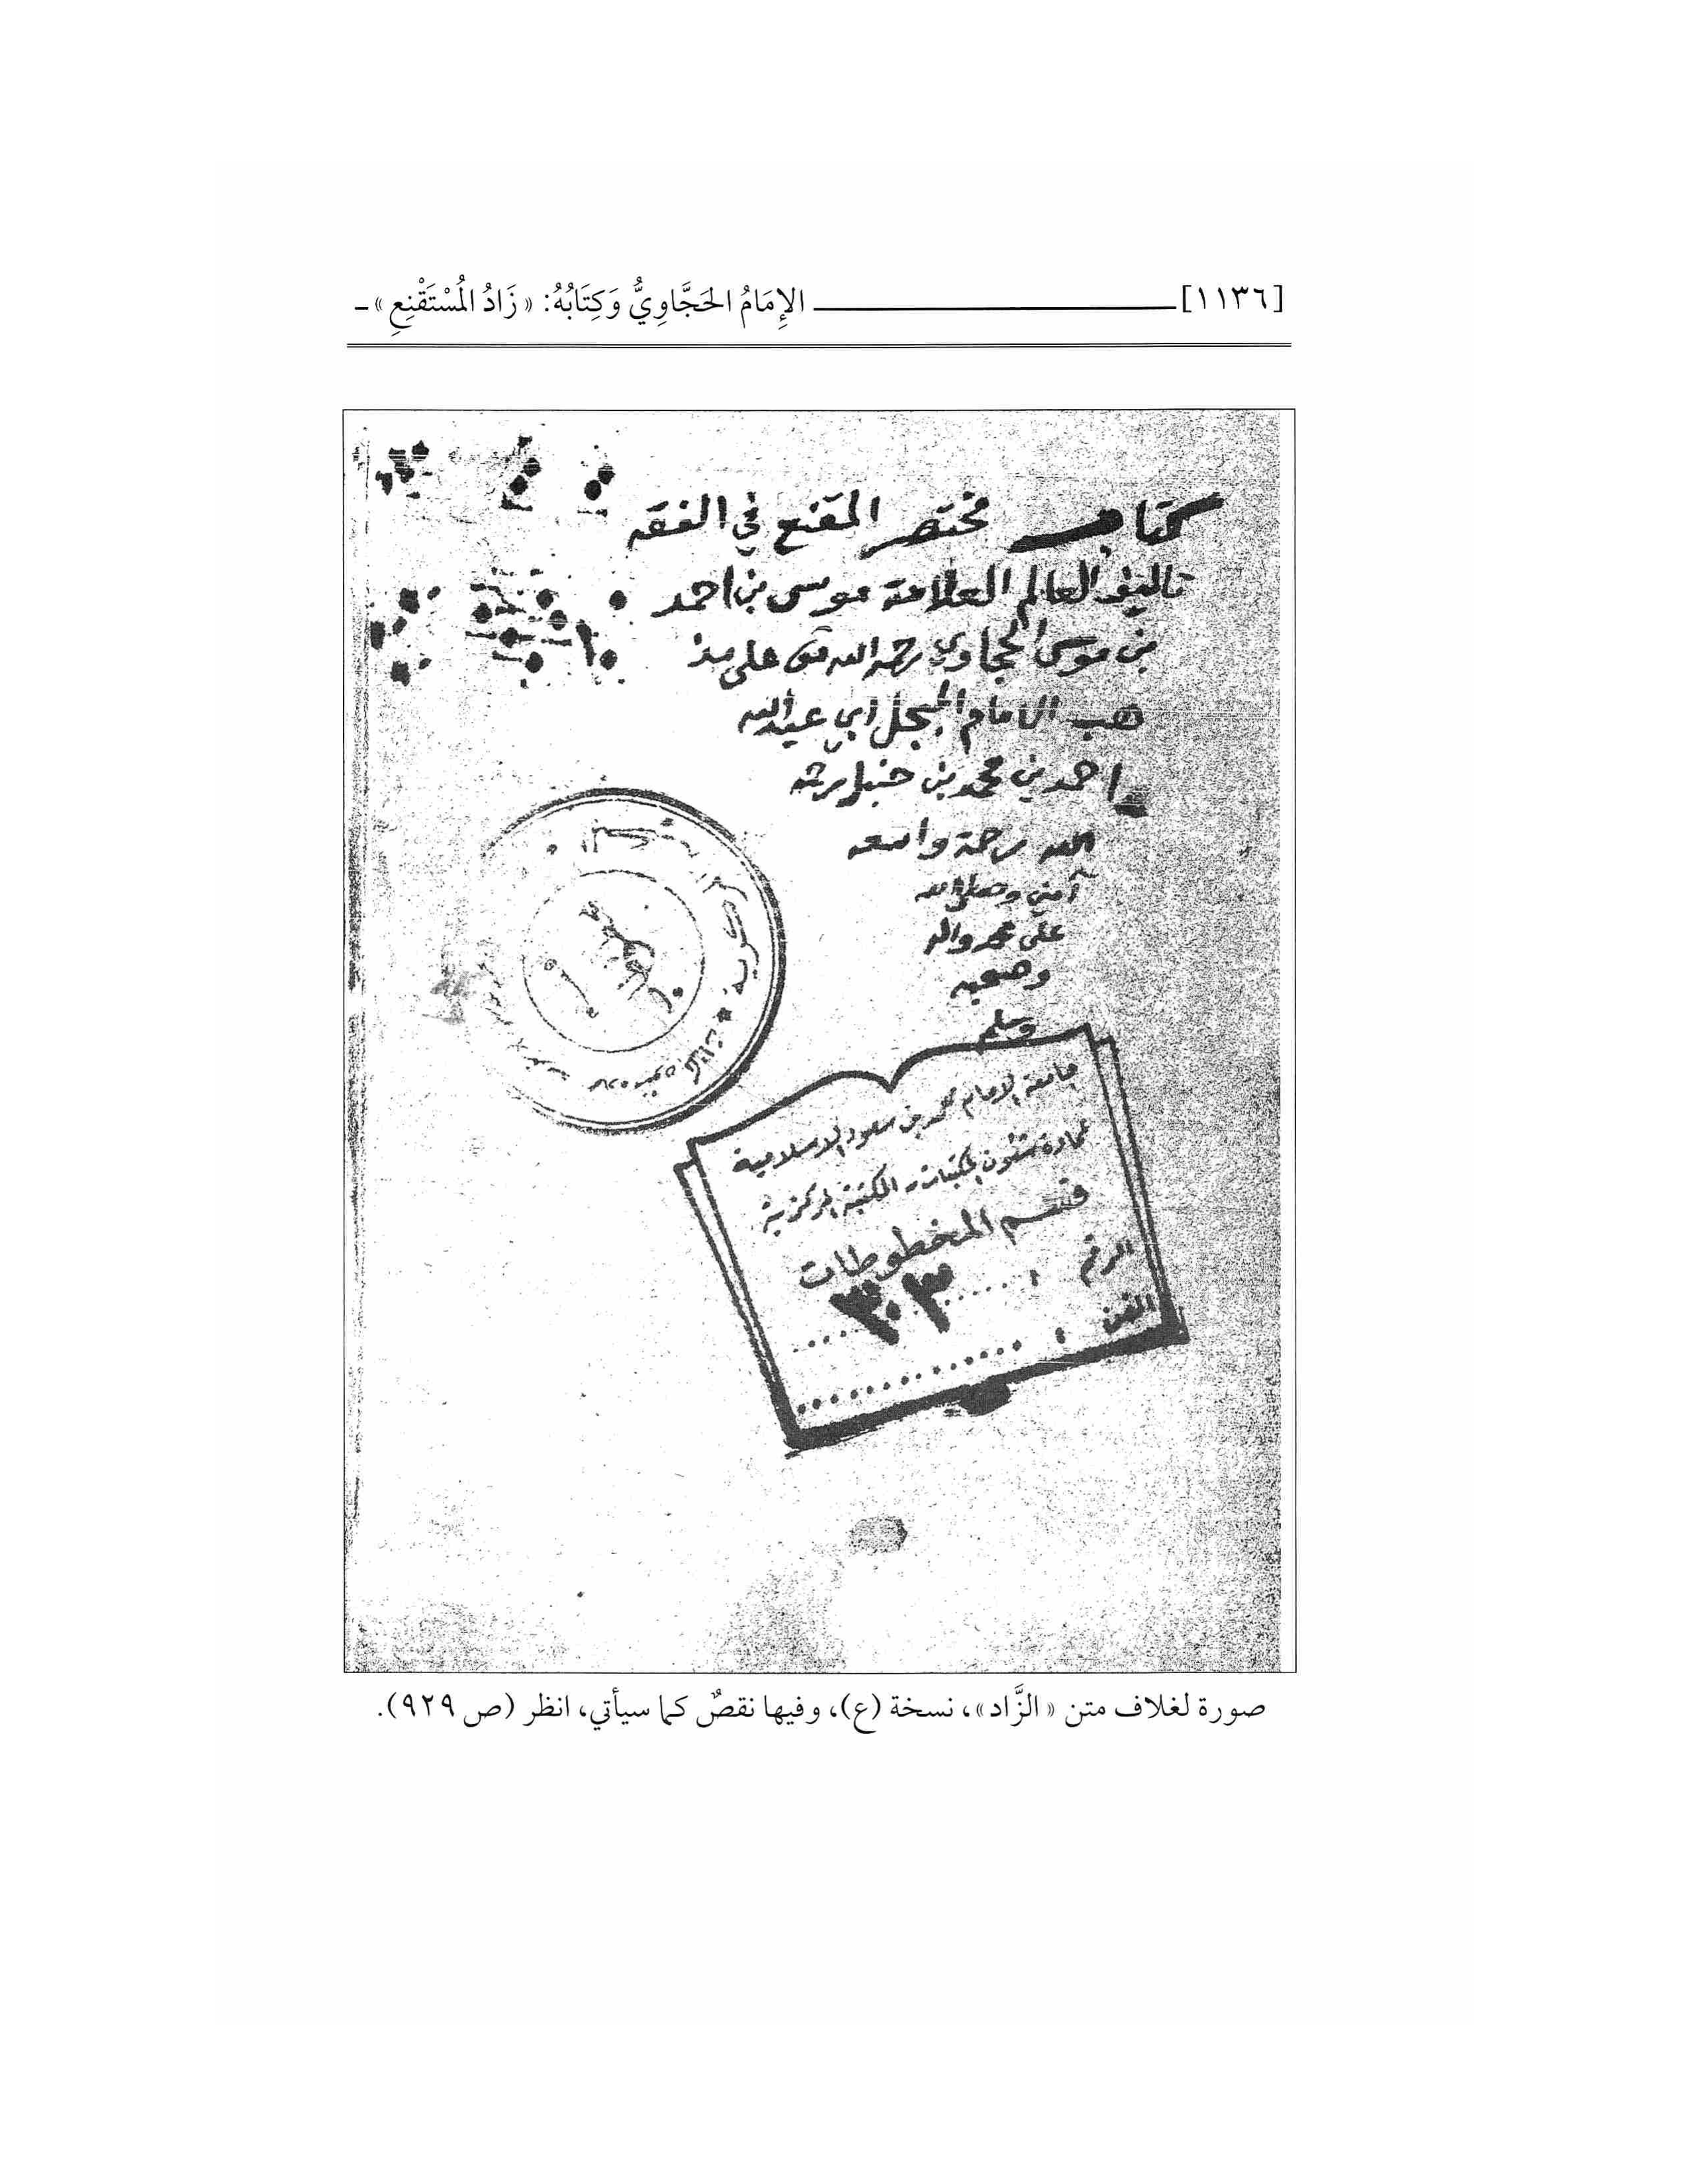 [١١٣٦] الإِمَامُ الحَجَّاوِيُّ وَكِتَابُهُ: «زَادُ المُسْتَقْنِعِ»
كتاب مختصر المقنع في الفقه
تاليف العالم العلامة موسى بن احمد
بن موسى الحجاوي رحمه الله على مذ
هب الامام المبجل ابي عبدالله
احمد بن محمد بن حنبل رحمه
الله رحمة واسعه
آمين وصلى الله
على محمد واله
وصحبه
وسلم
جامعة الإمام محمد بن سعود الإسلامية
عمادة شئون المكتبات - المكتبة المركزية
قسم المخطوطات
الرقم : ٣٠٣
الفن :
صورة لغلاف متن «الزَّاد»، نسخة (ع)، وفيها نقصٌ كما سيأتي، انظر (ص ٩٢٩).